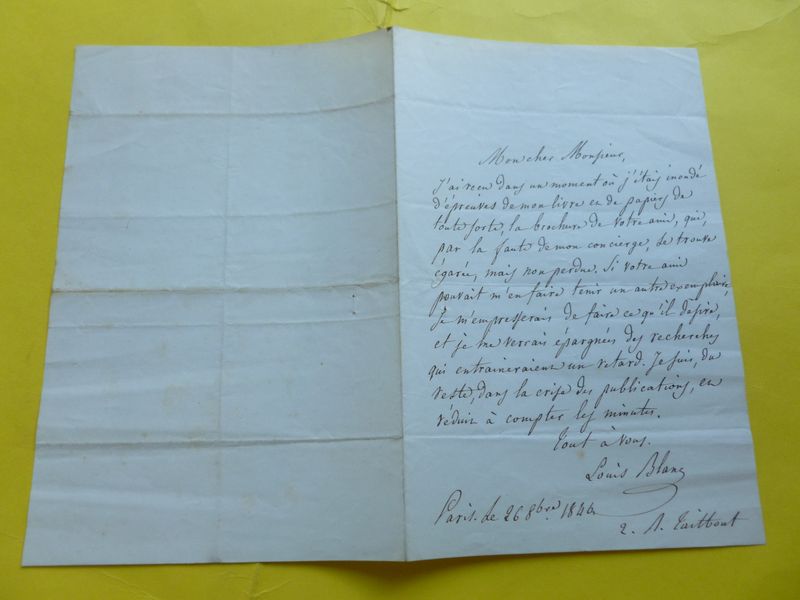 Mon cher Monsieur,
J'ai reçu dans un moment où j'étais inondé
d'épreuves de mon livre et de papiers de
toute sorte, la brochure de votre ami, qui,
par la faute de mon concierge, se trouve
égarée, mais non perdue. Si votre ami
pouvait m'en faire tenir un autre exemplaire,
je m'empresserais de faire ce qu'il désire,
et je me verrais épargnées des recherches
qui entraineraient un retard. Je suis, du
reste, dans la crise des publications, et
réduit à compter les minutes.
Tout à vous.
Louis Blanc
Paris. 26 8bre
2. r. Taitbout